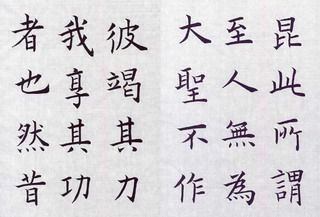 昆此所謂
至人無為
大聖不作
彼竭其力
我享其功
者也然昔